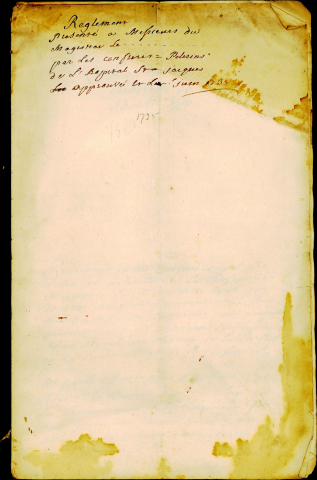 Reglement
Presenté a Messieurs du
Magistrat le - - - - - -
par les confreres = Pelerins
de St. hopital St. Jacques
approuvé le Juin 1735
1735